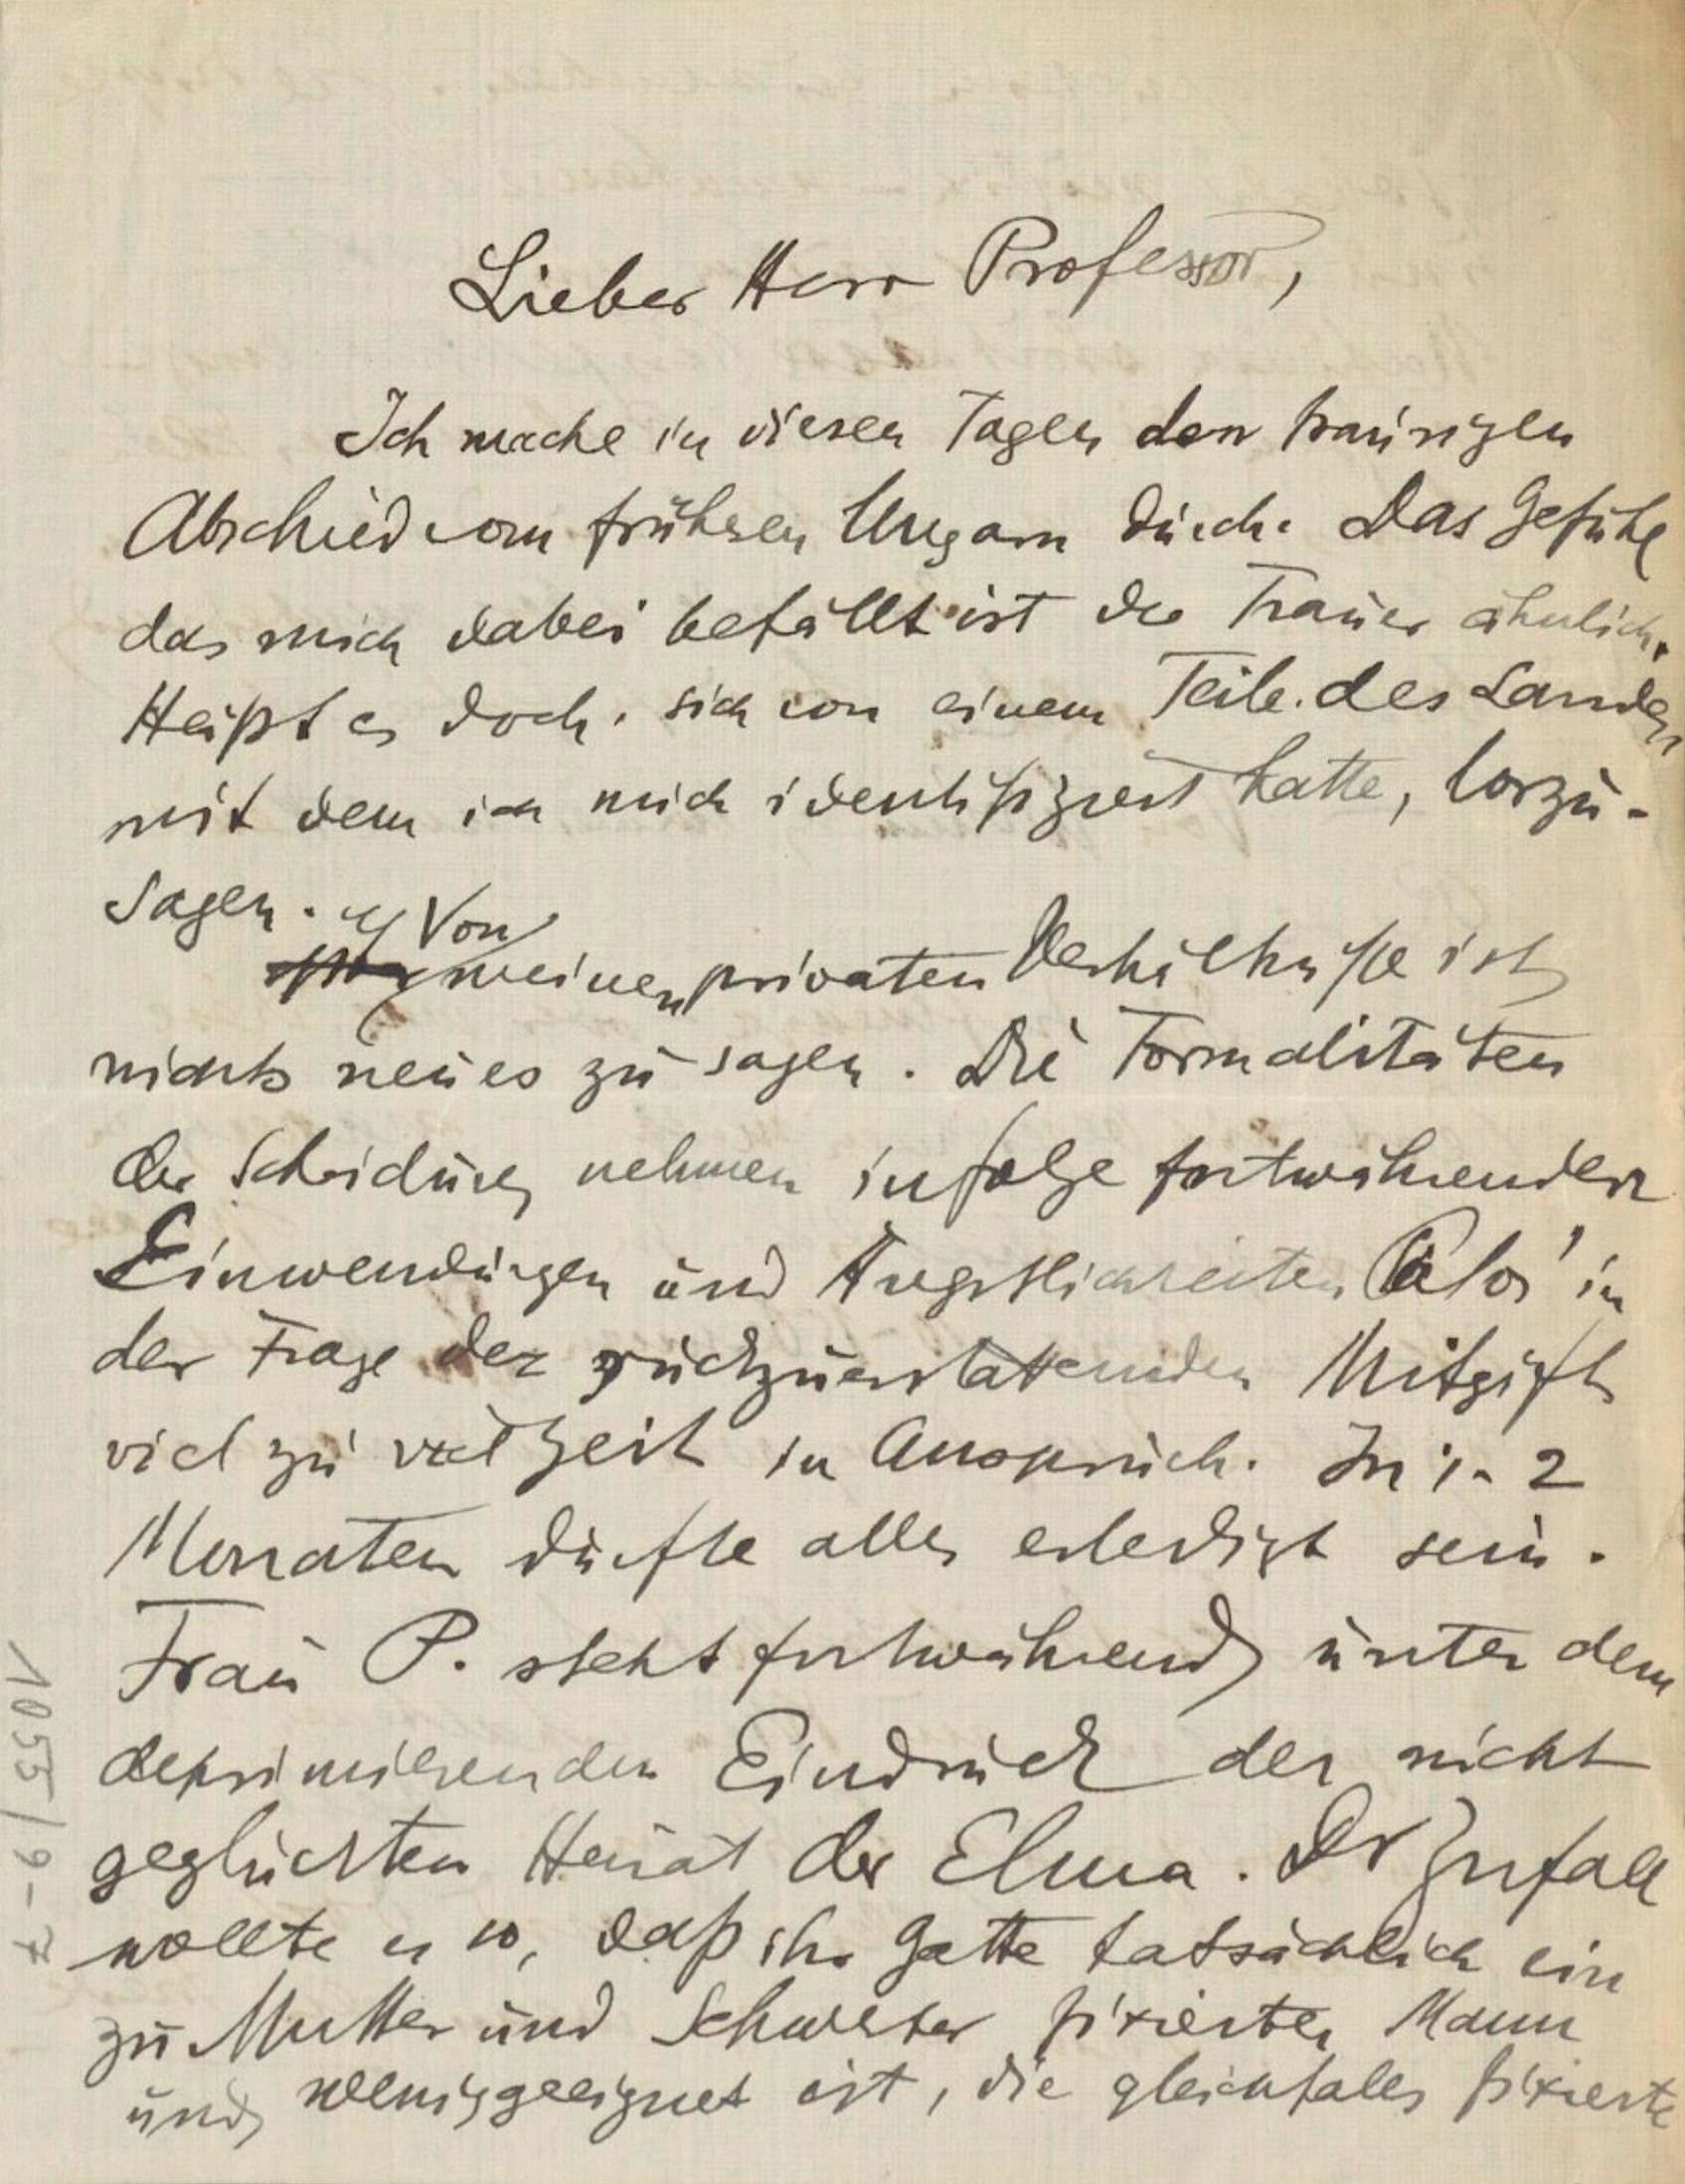 Lieber Herr Professor,
Ich mache in diesen Tagen den traurigen
Abschied vom frühren Ungarn durch. Das Gefühl
das mich dabei befällt ist der Trauer ähnlich.
Heißt es doch, sich von einem Teile des Landes
mit dem ich mich identifiziert hatte, loszu-
sagen.
Von
meinen privaten Verhältnisse ist
nichts neues zu sagen. Die Formalitäten
der Scheidung nehmen infolge fortwährender
Einwendungen und Ängstlichkeiten Pálos' in
der Frage der rückzuerstattenden Mitgift
viel zu viel Zeit in Anspruch. In 1-2
Monaten dürfte alles erledigt sein.
Frau P. steht fortwährend unter dem
deprimierenden Eindruck der nicht
geglückten Heirat der Elma. Der Zufall
wollte es so, daß ihr Gatte tatsächlich ein
zu Mutter und Schwester fixierter Mann
und wenig geeignet ist, die gleichfalls fixierte
1055/9-7